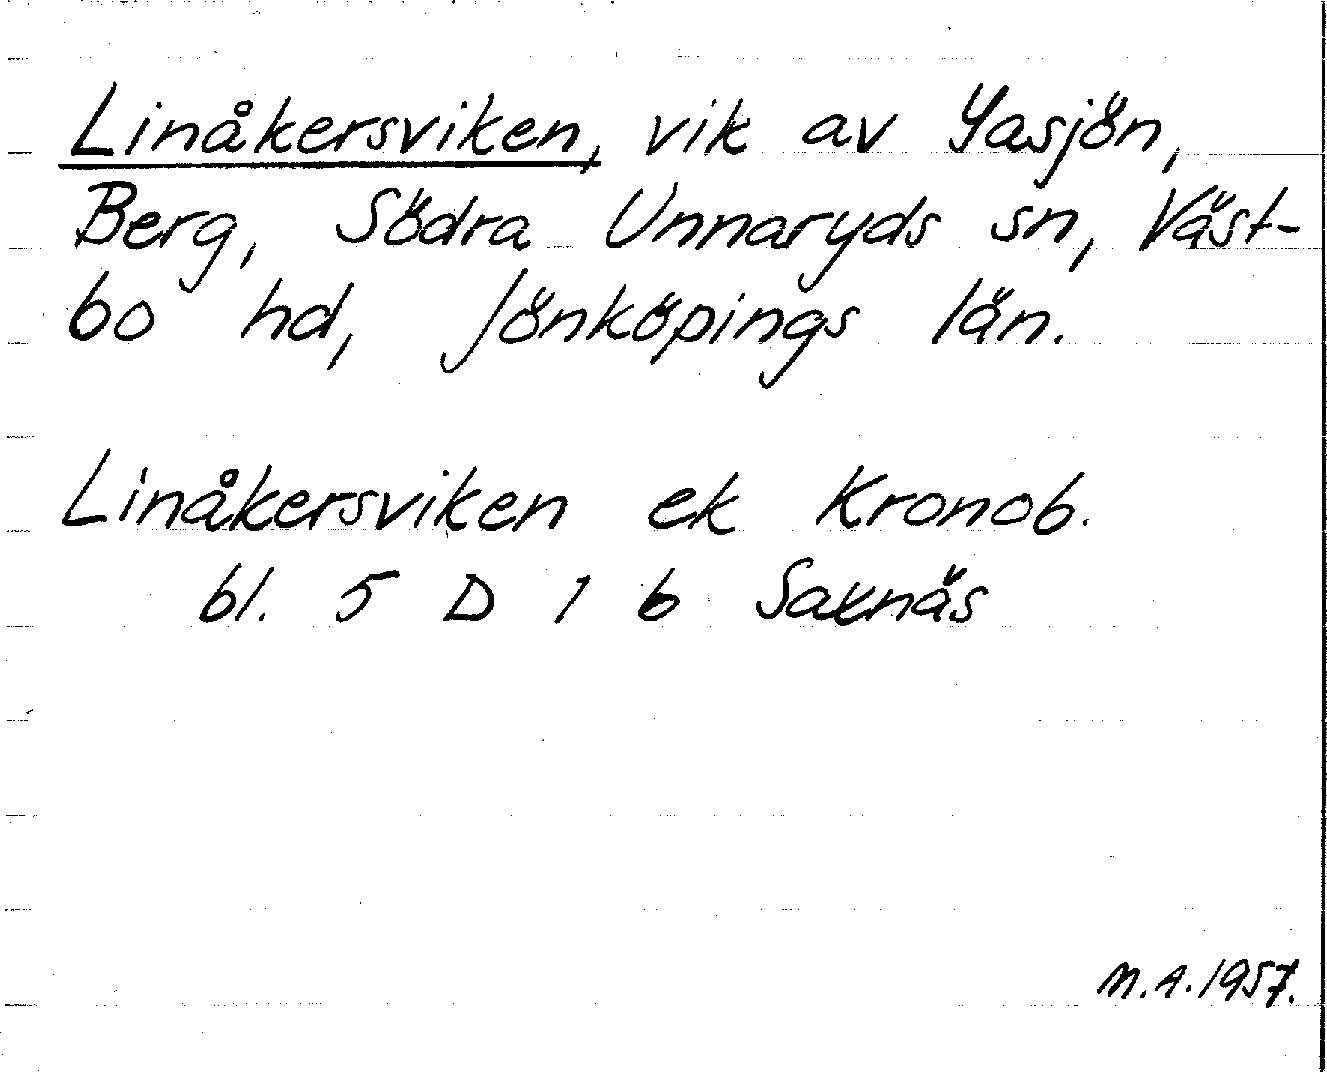 Linåkersviken, vik av Yasjön,
Berg, Södra Unnaryds sn, Väst-
bo hd, Jönköpings län.
Linåkersviken ek Kronob.
bl. 5 D 1 b Saxnäs
M.A. 1957.